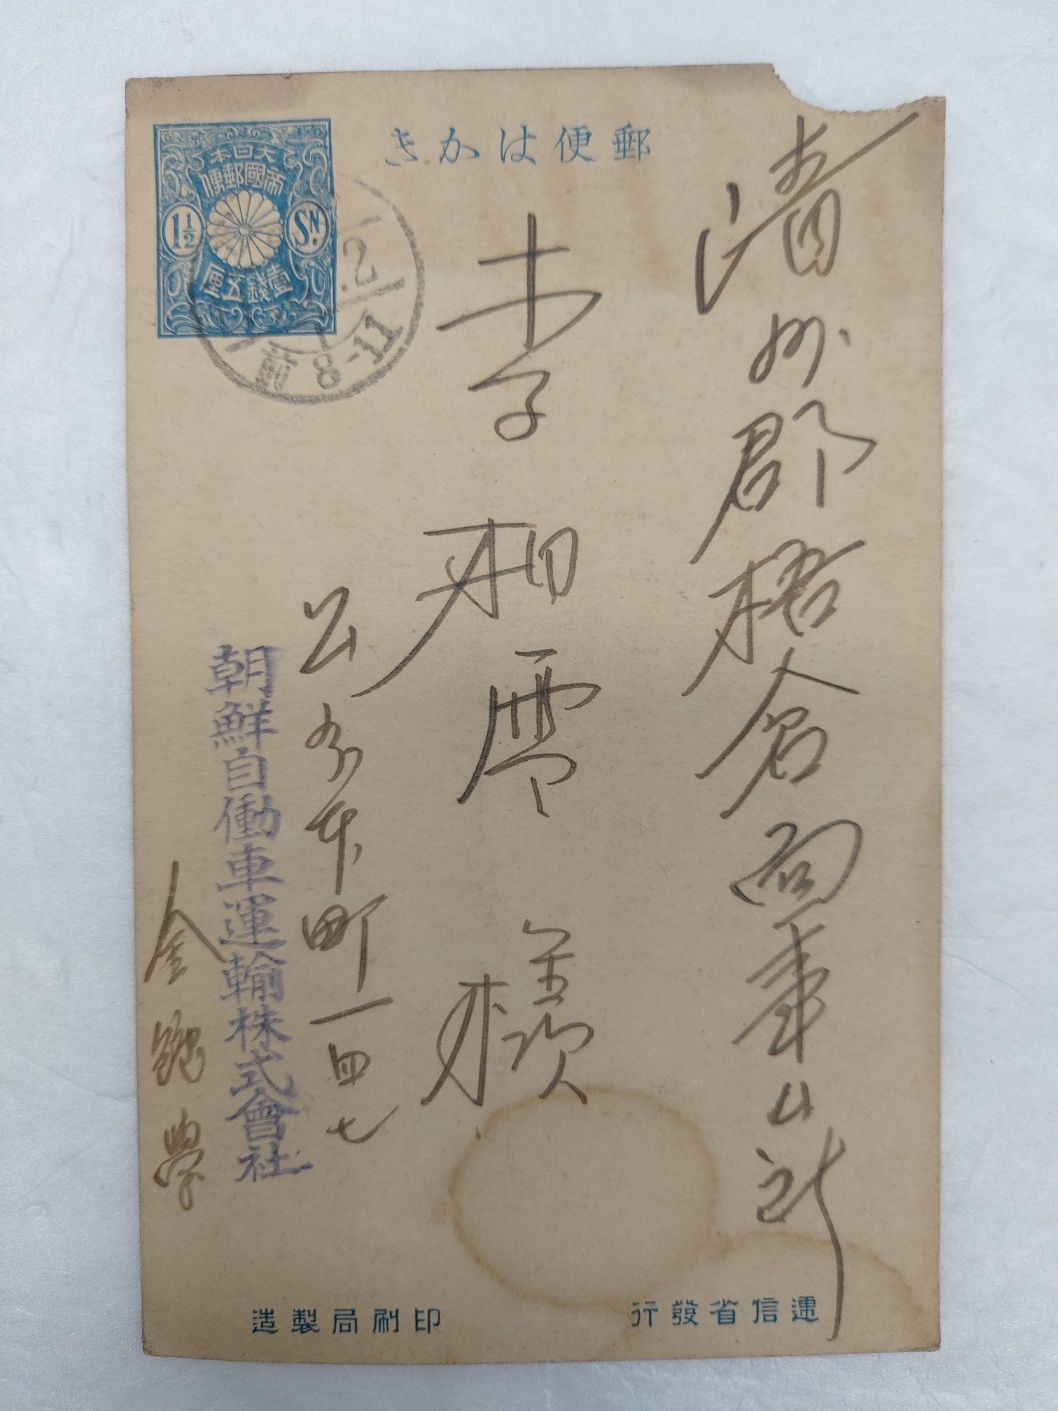 郵便はかき
大日本
帝國郵便
1½
SN.
壹錢五厘
2
前8-11
清州郡梧倉面
李相雲
公州本町一四七
朝鮮自働車運輸株式會社
金 學
遞信省發行
印刷局製造